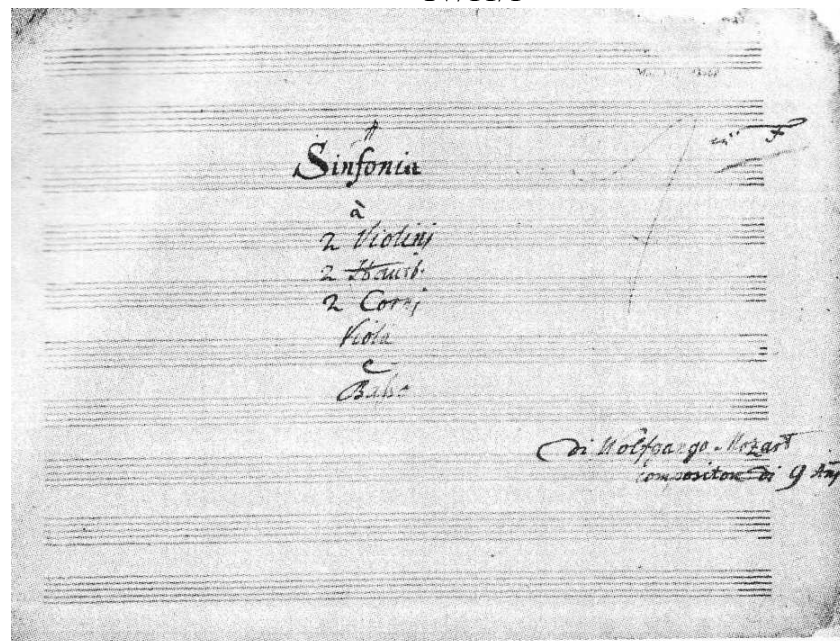 Sinfonia
à
2 Violinj
2 Hautb.
2 Cornj
Viola
e
Baßo
di Wolfgango Mozart
compositore di 9 Anj